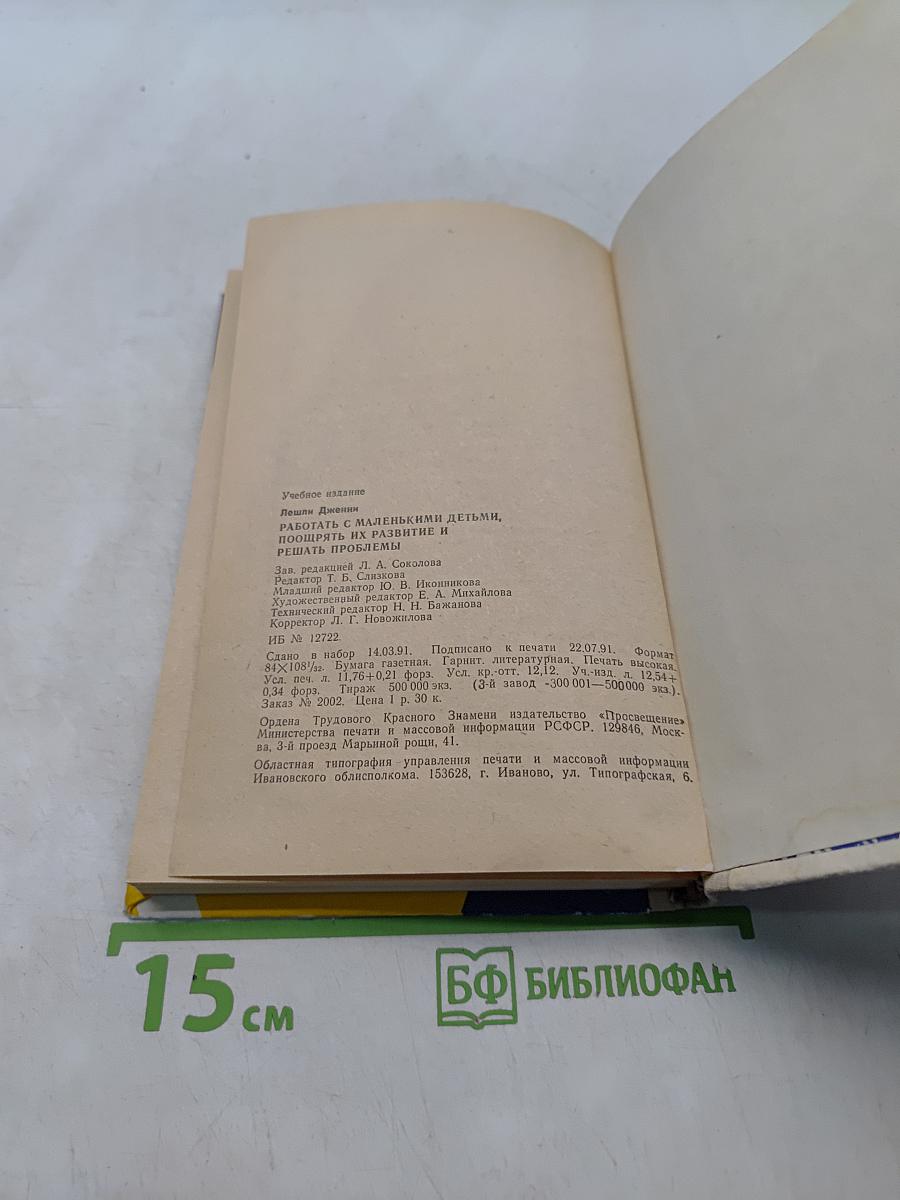 Учебное издание
Лешли Дженни
РАБОТАТЬ С МАЛЕНЬКИМИ ДЕТЬМИ,
ПООЩРЯТЬ ИХ РАЗВИТИЕ И
РЕШАТЬ ПРОБЛЕМЫ
Зав. редакцией Л. А. Соколова
Редактор Т. Б. Слизкова
Младший редактор Ю. В. Иконникова
Художественный редактор Е. А. Михайлова
Технический редактор Н. Н. Бажанова
Корректор Л. Г. Новожилова
ИБ № 12722
Сдано в набор 14.03.91. Подписано к печати 22.07.91. Формат
84×108¹/₃₂. Бумага газетная. Гарнит. литературная. Печать высокая.
Усл. печ. л. 11,76+0,21 форз. Усл. кр.-отт. 12,12. Уч.-изд. л. 12,54+
0,34 форз. Тираж 500 000 экз. (3-й завод -300 001—500 000 экз.).
Заказ № 2002. Цена 1 р. 30 к.
Ордена Трудового Красного Знамени издательство «Просвещение»
Министерства печати и массовой информации РСФСР. 129846, Моск-
ва, 3-й проезд Марьиной рощи, 41.
Областная типография управления печати и массовой информации
Ивановского облисполкома. 153628, г. Иваново, ул. Типографская, 6.
15 см
БФ БИБЛИОФАН